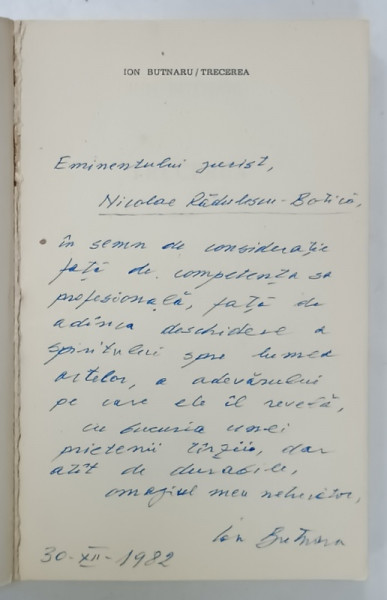 ION BUTNARU / TRECEREA
Eminentului jurist,
Nicolae Rădulescu-Botică,
în semn de considerație
față de competența sa
profesională, față de
adînca deschidere a
spiritului spre lumea
artelor, a adevărului
pe care ele îl revelă,
cu bucuria unei
prietenii tîrzii, dar
atît de durabile,
omagiul meu
Ion Butnaru
30-XII-1982